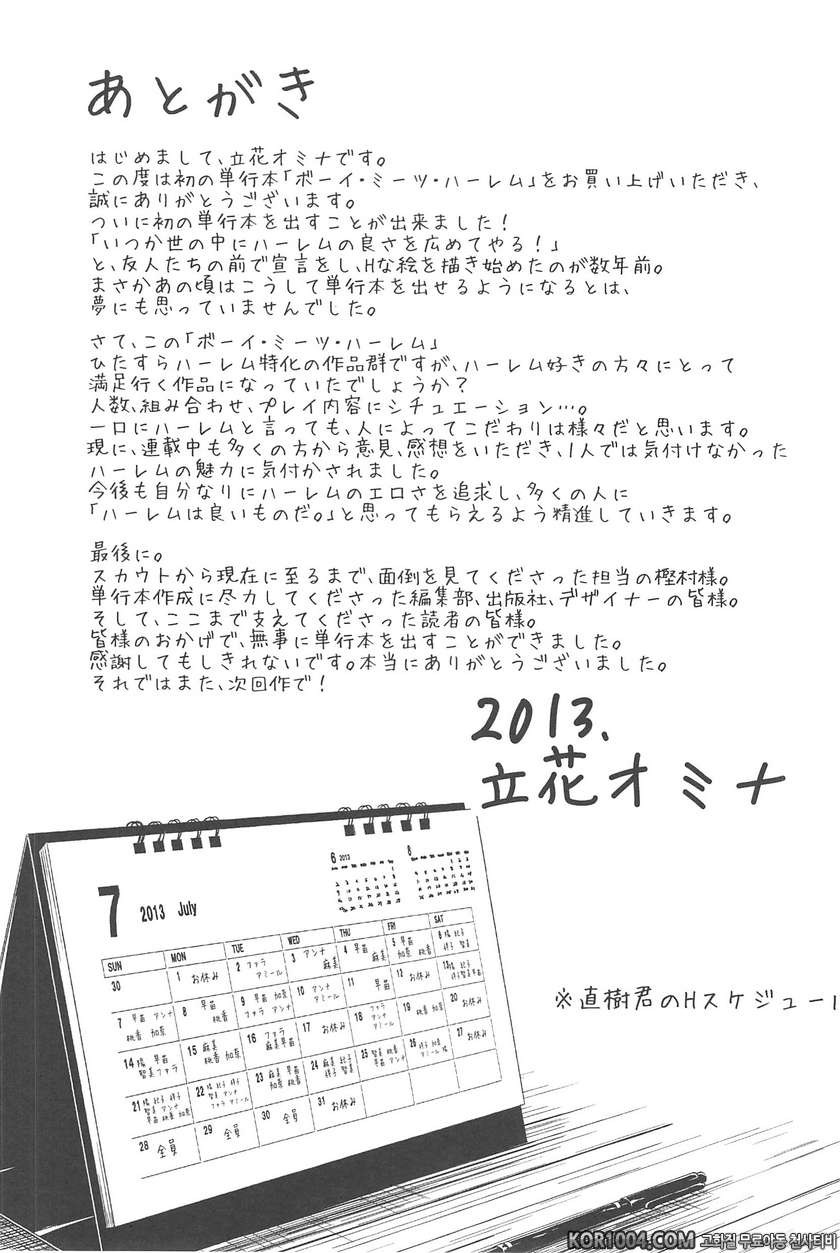 あとがき
はじめまして、立花オミナです。
この度は初の単行本「ボーイ・ミーツ・ハーレム」をお買い上げいただき、
誠にありがとうございます。
ついに初の単行本を出すことが出来ました！
「いつか世の中にハーレムの良さを広めてやる！」
と、友人たちの前で宣言をし、Hな絵を描き始めたのが数年前。
まさかあの頃はこうして単行本を出せるようになるとは、
夢にも思っていませんでした。
さて、この「ボーイ・ミーツ・ハーレム」
ひたすらハーレム特化の作品群ですが、ハーレム好きの方々にとって
満足行く作品になっていたでしょうか？
人数、組み合わせ、プレイ内容にシチュエーション…。
一口にハーレムと言っても、人によってこだわりは様々だと思います。
現に、連載中も多くの方から意見、感想をいただき、1人では気付けなかった
ハーレムの魅力に気付かされました。
今後も自分なりにハーレムのエロさを追求し、多くの人に
「ハーレムは良いものだ。」と思ってもらえるよう精進していきます。
最後に。
スカウトから現在に至るまで、面倒を見てくださった担当の樫村様。
単行本作成に尽力してくださった編集部、出版社、デザイナーの皆様。
そして、ここまで支えてくださった読者の皆様。
皆様のおかげで、無事に単行本を出すことができました。
感謝してもしきれないです。本当にありがとうございました。
それではまた、次回作で！
2013.
立花オミナ
6 2013
8
7 2013 July
SUN MON TUE WED THU FRI SAT
30 1 お休み 2 ファラ アミール 3 アンナ 麻美 4 早苗 桃香 5 早苗 加奈 6
7 早苗 アンナ 桃香 加奈 8 早苗 桃香 9 早苗 加奈 ファラ アンナ 10 アンナ アミール 11 早苗 12 お休み 13
14 早苗 智美 ファラ 15 麻美 桃香 加奈 16 ファラ 麻美 早苗 17 お休み 18 ファラ アンナ アミール 19 桃香 加奈 20 お休み
21 22 23 麻美 早苗 加奈 桃香 24 25 26 27 お休み
28 全員 29 全員 30 全員 31 お休み
※直樹君のHスケジュー
KOR1004.COM 고화질 무료야동 천사티비